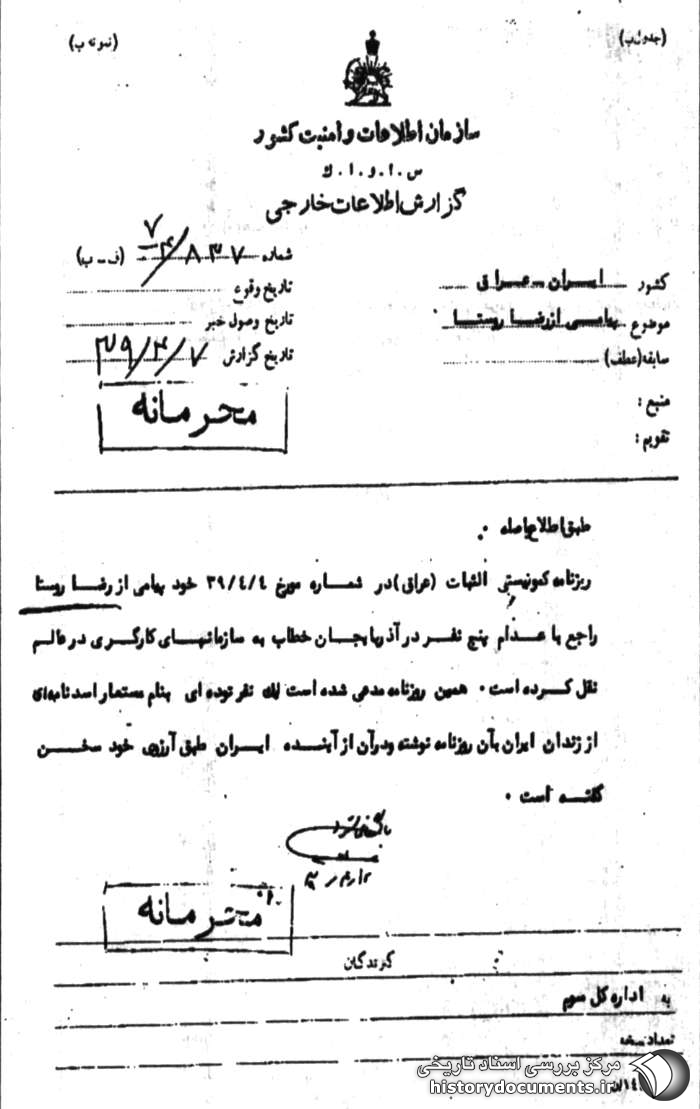 (جدول ب)
(نمونه ب)
سازمان اطلاعات و امنیت کشور
س . ا . و . ا . ك
گزارش اطلاعات خارجی
شماره ۷/۴۸۳۷ (ف - ب)
کشور ایران - عراق
تاریخ وقوع
موضوع پیامی از رضا روستا
تاریخ وصول خبر
سابقه (عطف)
تاریخ گزارش ۳۹/۴/۷
منبع :
محرمانه
تقویم :
طبق اطلاع واصله .
روزنامه کمونیستی الثبات (عراق) در شماره مورخ ۳۹/۴/۴ خود پیامی از رضا روستا
راجع باعدام پنج نفر در آذربایجان خطاب به سازمانهای کارگری در عالم
نقل کرده است . همین روزنامه مدعی شده است یك نفر توده ای بنام مستعار اسد نامه‌ای
از زندان ایران بآن روزنامه نوشته ودرآن از آینده ایران طبق آرزوی خود سخن
گفته است .
محرمانه
گیرندگان
به اداره کل سوم
تعداد نسخه
مرکز بررسی اسناد تاریخی
historydocuments.ir